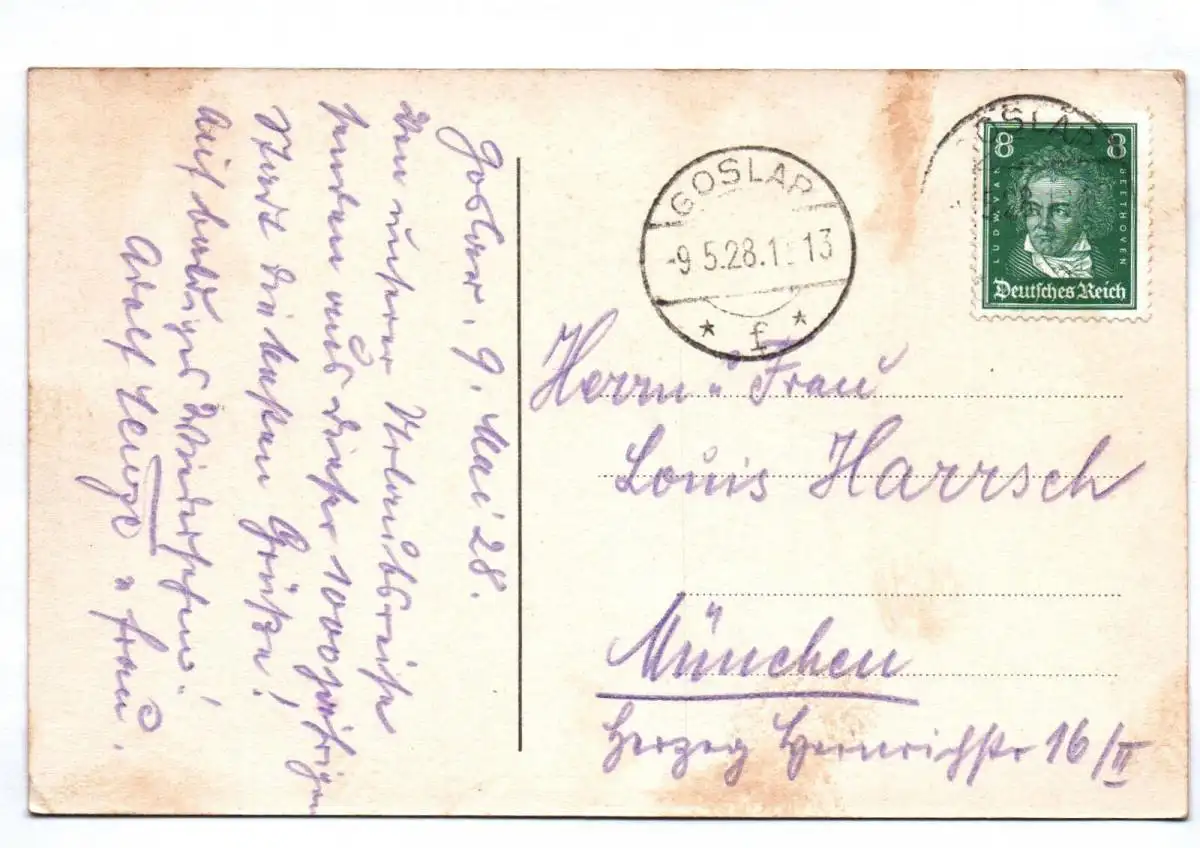 Goslar, 9. Mai 28.
Von unserer Urlaubsreise
senden aus dieser 1000jährigen
Stadt die besten Grüße!
Auf baldiges Wiedersehen!
Adolf u. Frau.
GOSLAR
-9.5.28.1 13
* f *
GOSLAR
8 8
LUDW. VAN BEETHOVEN
Deutsches Reich
Herrn u Frau
Louis Harrsch
München
Herzog Heinrichstr 16/II